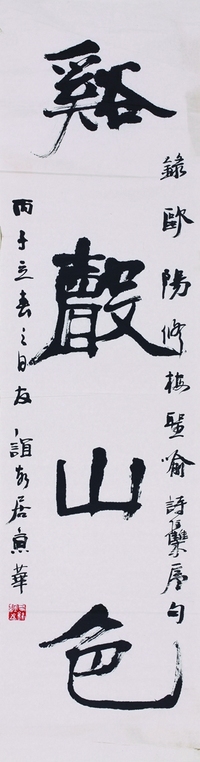 錄歐陽修梅聖喻詩集序句
谿聲山色
丙子立春之日友誼居華